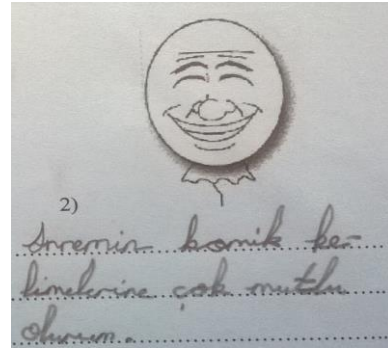 2)
Annemin komik ke-
limelerine çok mutlu
olurum.